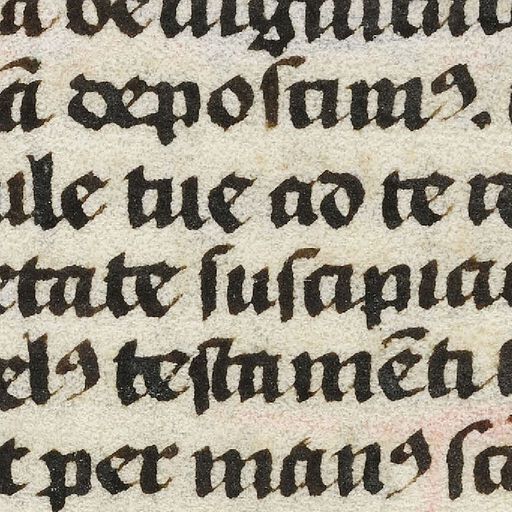 a benignitat
ā deposcimꝰ.
ule tue ad te re
etate suscipia
elꝰ testamēti
t per manꝰ sa